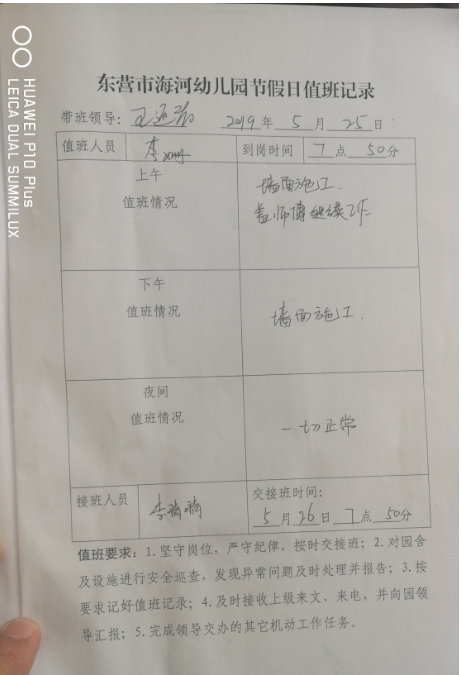 东营市海河幼儿园节假日值班记录
带班领导: 2019年 5 月 25 日
值班人员 李 到岗时间 7 点 50分
上午
值班情况
墙面施工.
师傅继续工作
下午
值班情况
墙面施工.
夜间
值班情况
一切正常
接班人员 李 交接班时间:
5 月 26 日 7 点 50分
值班要求: 1. 坚守岗位, 严守纪律, 按时交接班; 2. 对园舍
及设施进行安全巡查, 发现异常问题及时处理并报告; 3. 按
要求记好值班记录; 4. 及时接收上级来文、来电, 并向园领
导汇报; 5. 完成领导交办的其它机动工作任务.
HUAWEI P10 Plus
LEICA DUAL SUMMILUX